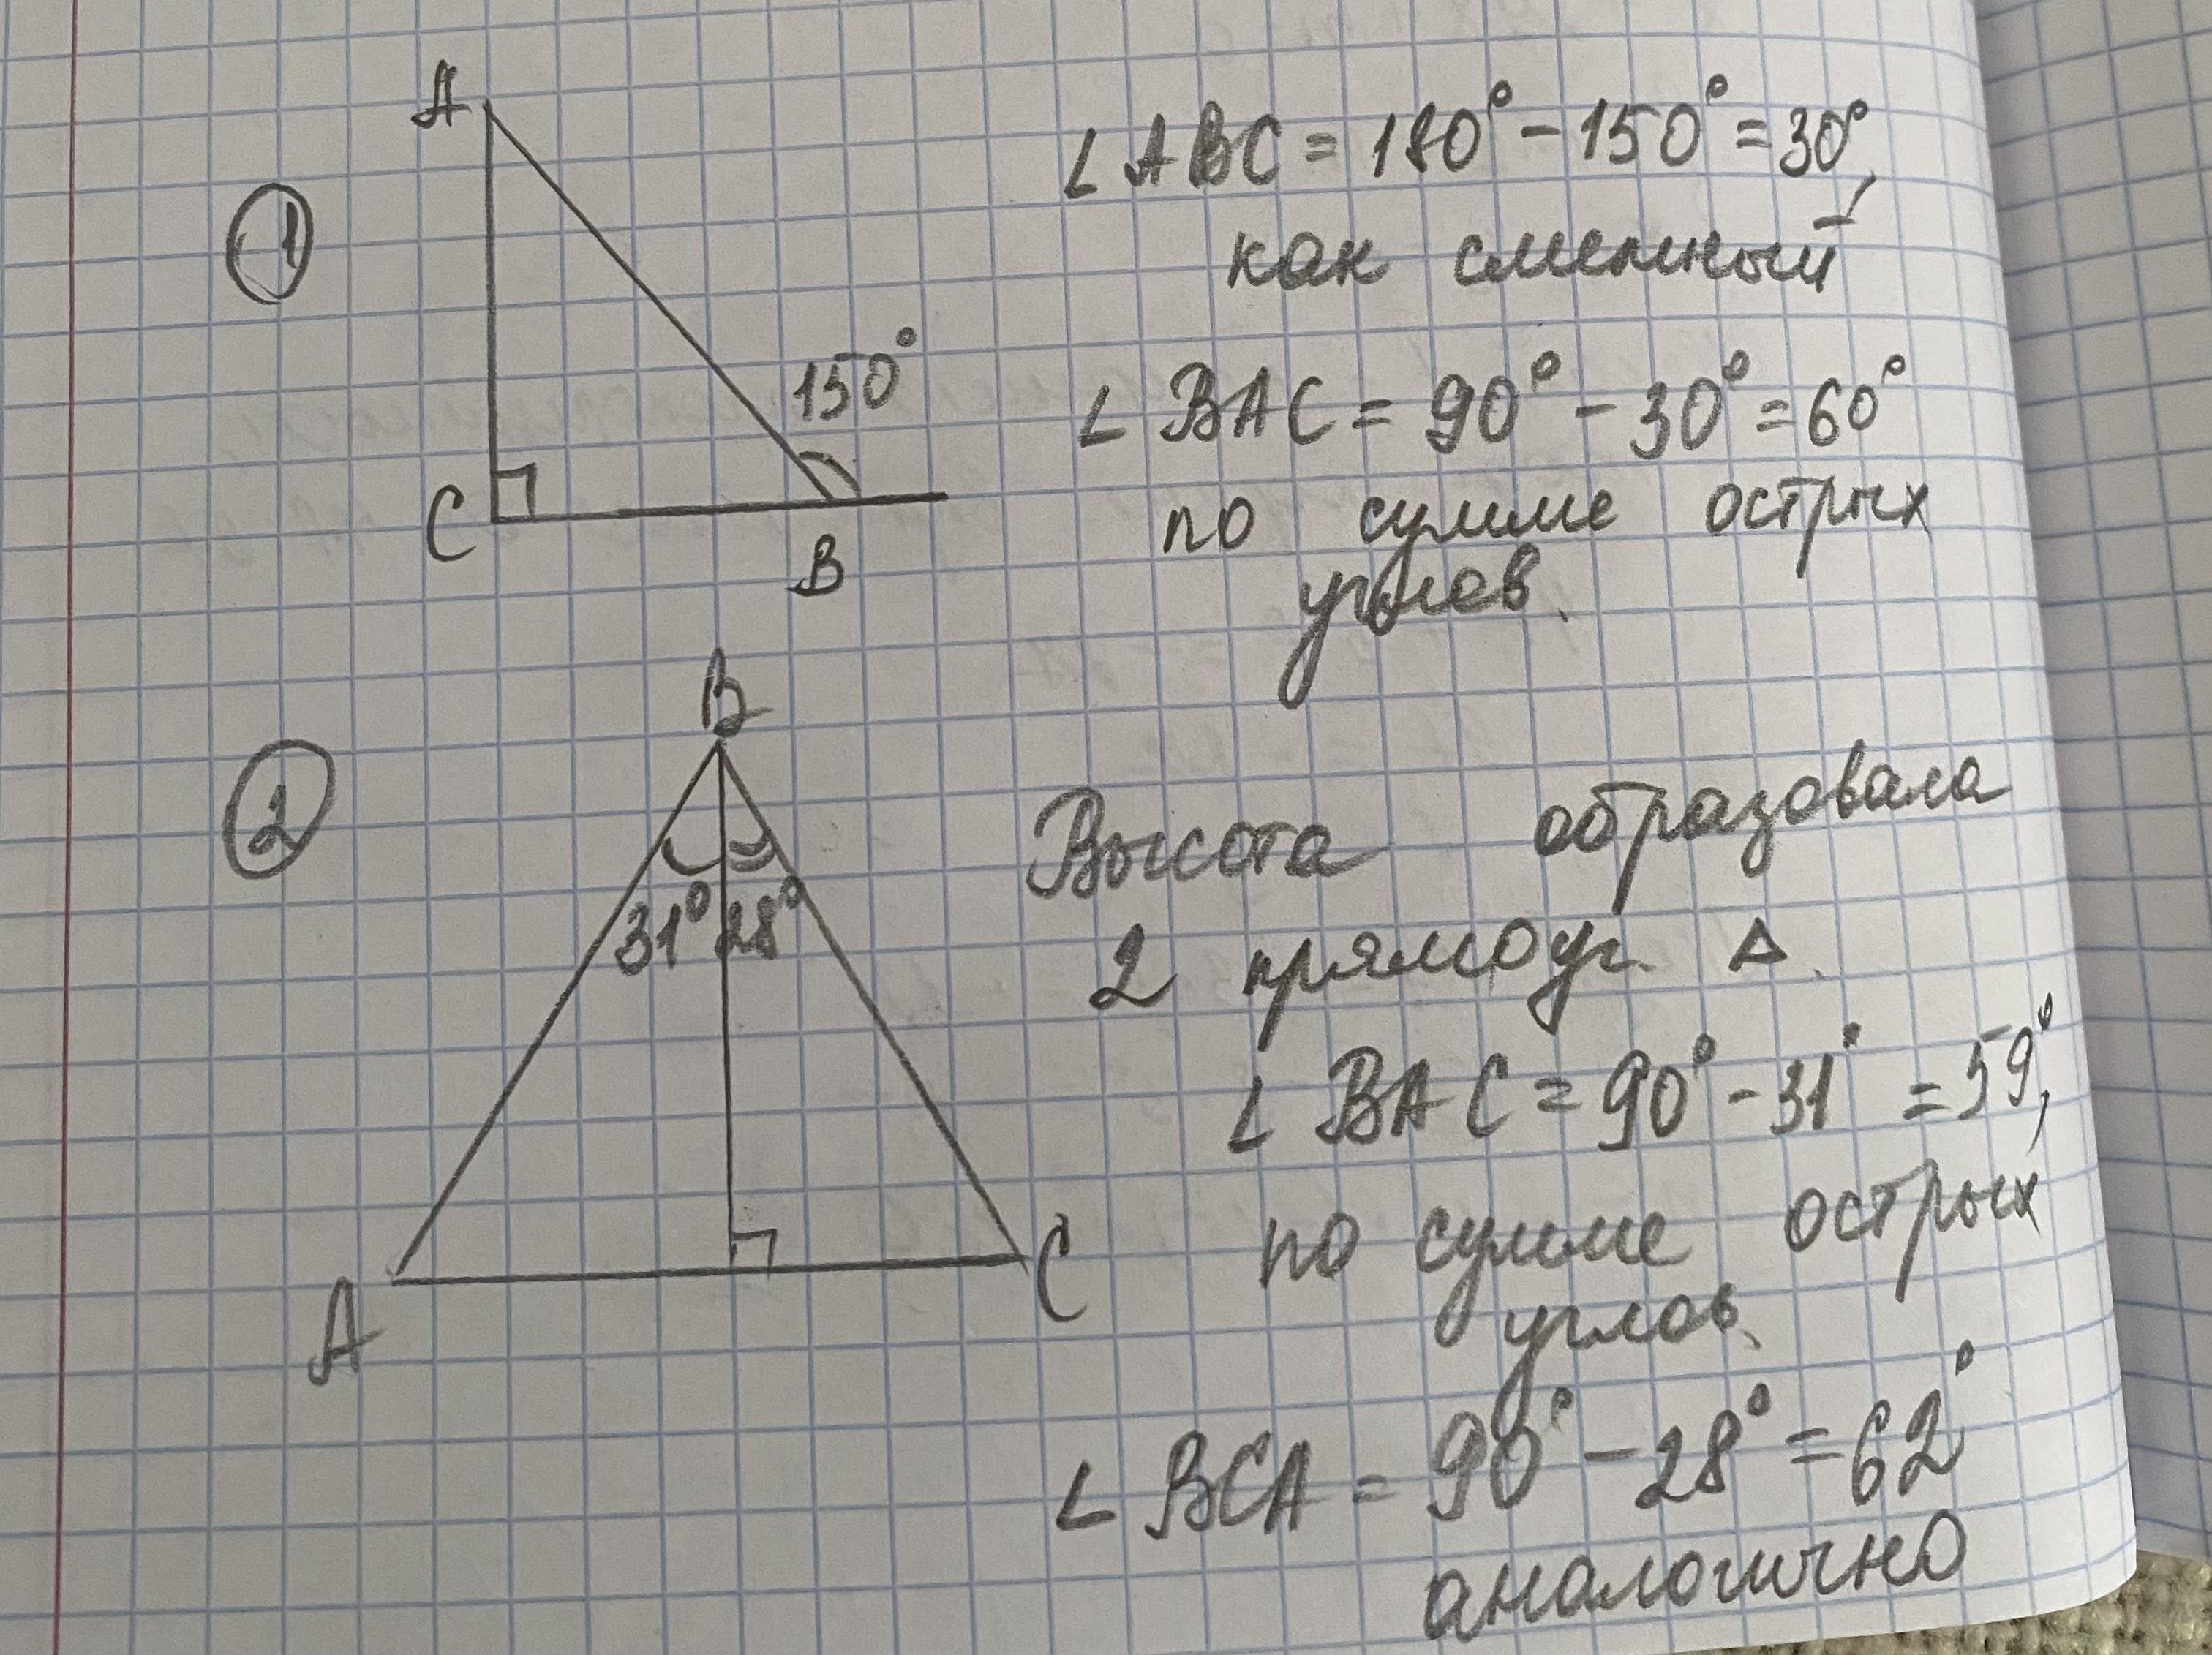 1
A
C
B
150°
∠ABC = 180° − 150° = 30°,
как смежный
∠ BAC = 90° − 30° = 60°
по сумме острых
углов.
2
B
31° 28°
A
C
Высота образовала
2 прямоуг. Δ.
∠ BAC = 90° − 31° = 59°,
по сумме острых
углов.
∠ BCA = 90° − 28° = 62°
аналогично